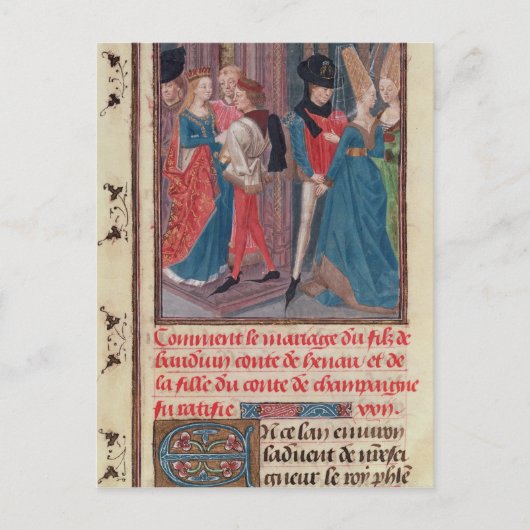 Comment le mariage du filz de
bauduin conte de henau et de
la fille du conte de champaigne
fu ratifie xvon.
En ce lan environ
laduent de nresei
gneur le roy phle